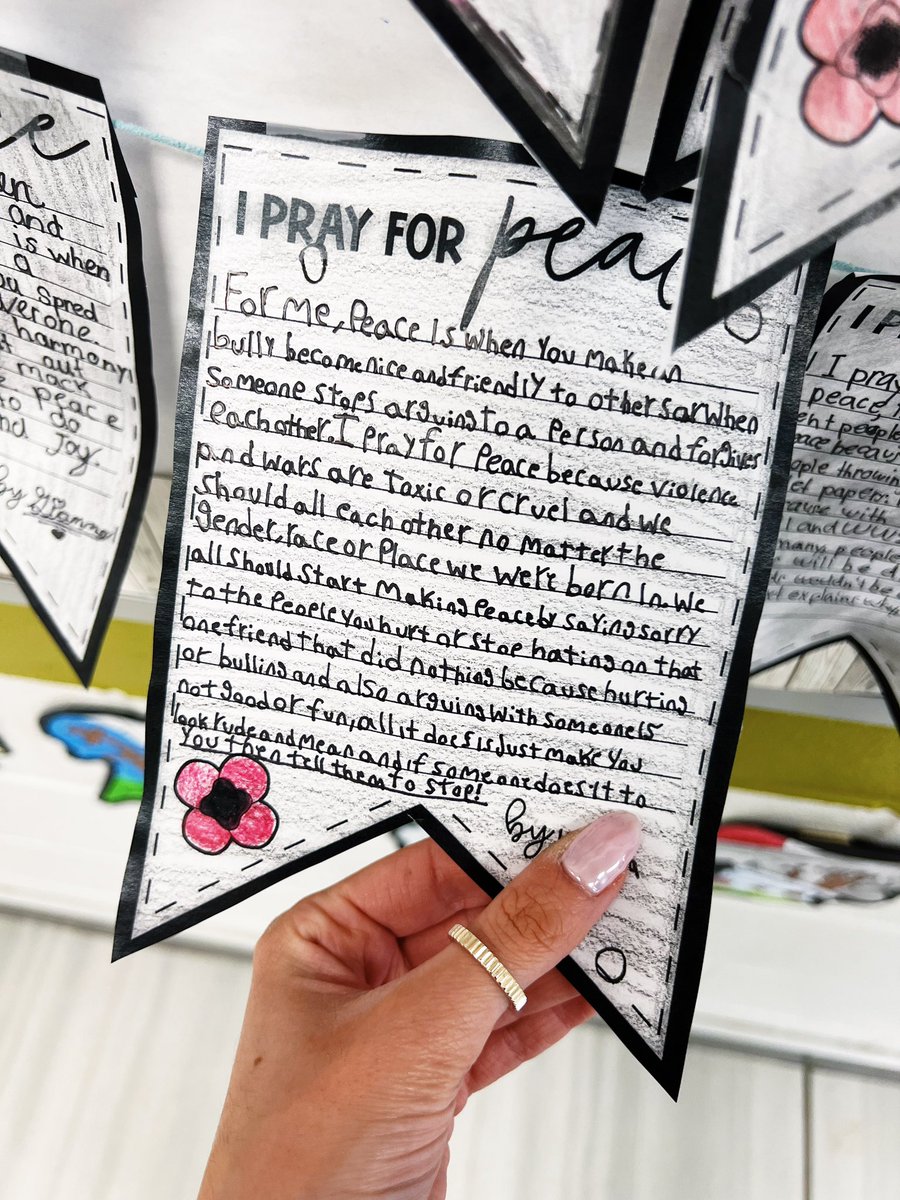 I PRAY FOR
For me, Peace Is when You make
bully become nice and friendly to others or when
Someone stops arguing to a Person and forgives
each other. I Pray for Peace because violence
and wars are Taxic or cruel and we
should all each other no matter the
gender, race or Place we were born In. We
all should start Making Peace by saying sorry
to the People you hurt or stop hating on that
one friend that did nothing because hurting
or bulling and also arguing with someone is
not good or fun, all it does is Just make You
look rude and Mean and if someone does it to
You then tell them to stop!
by
and
is when
a
spred
verone.
harmony
aut
mack
peace
to go
Joy.
by
I pray
peace
people
ople throwing
paper
with
and
many people
will be
wouldn't be
explains why